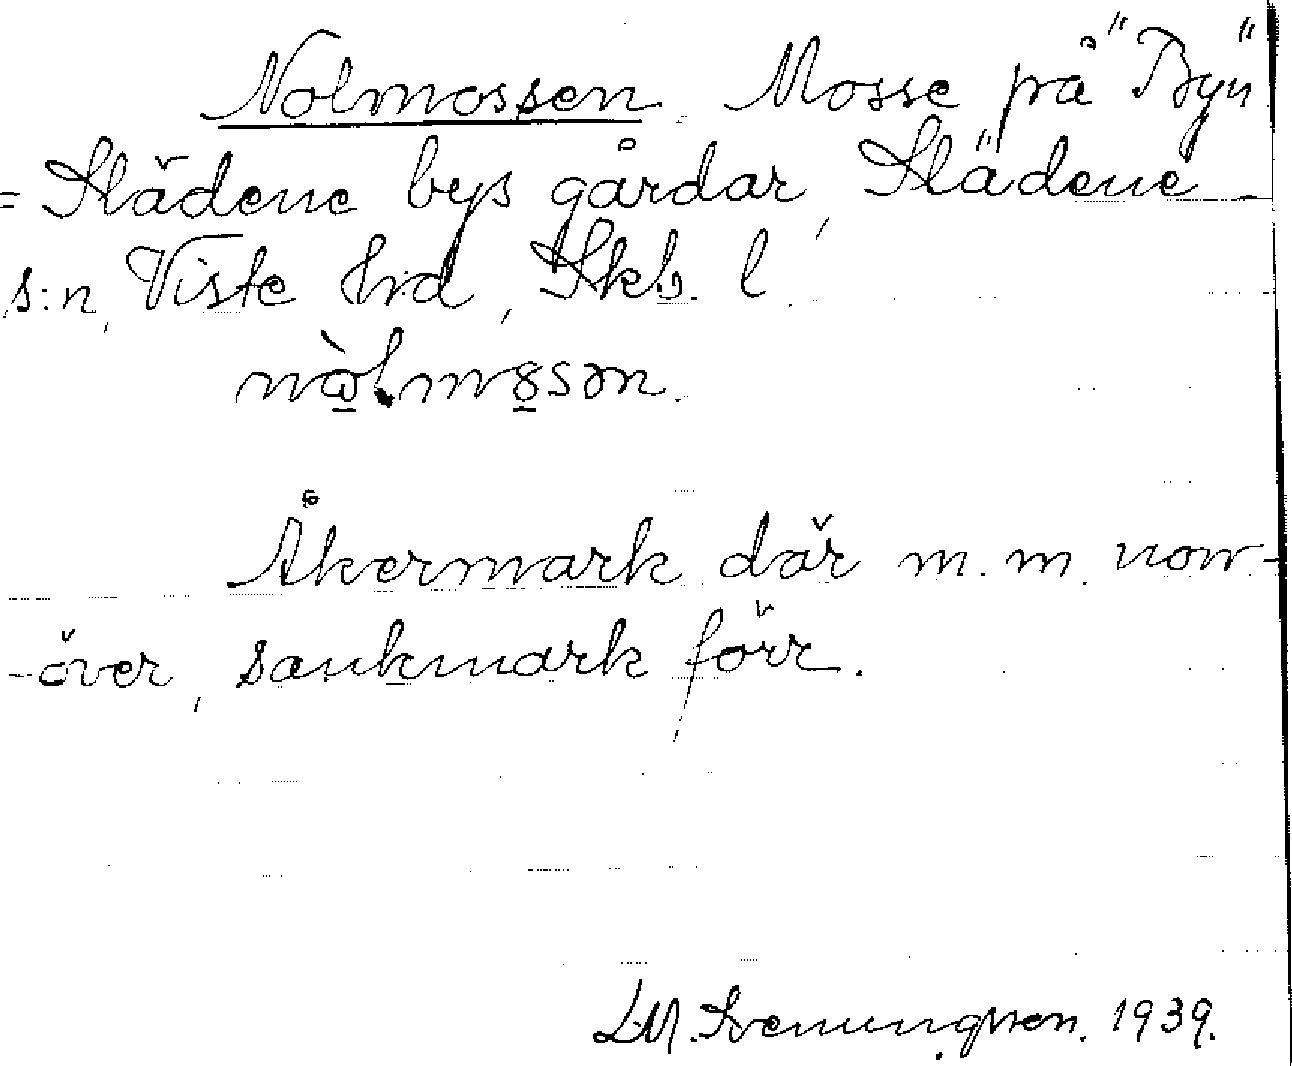 Nolmossen. Mosse på "Byn"
= Slädene bys gårdar, Slädene
s:n, Viste hrd, Skb. l.
nὼlmo̲sən.
Åkermark där m. m. nom-
-över, sankmark förr.
L.M. Svenungsson. 1939.